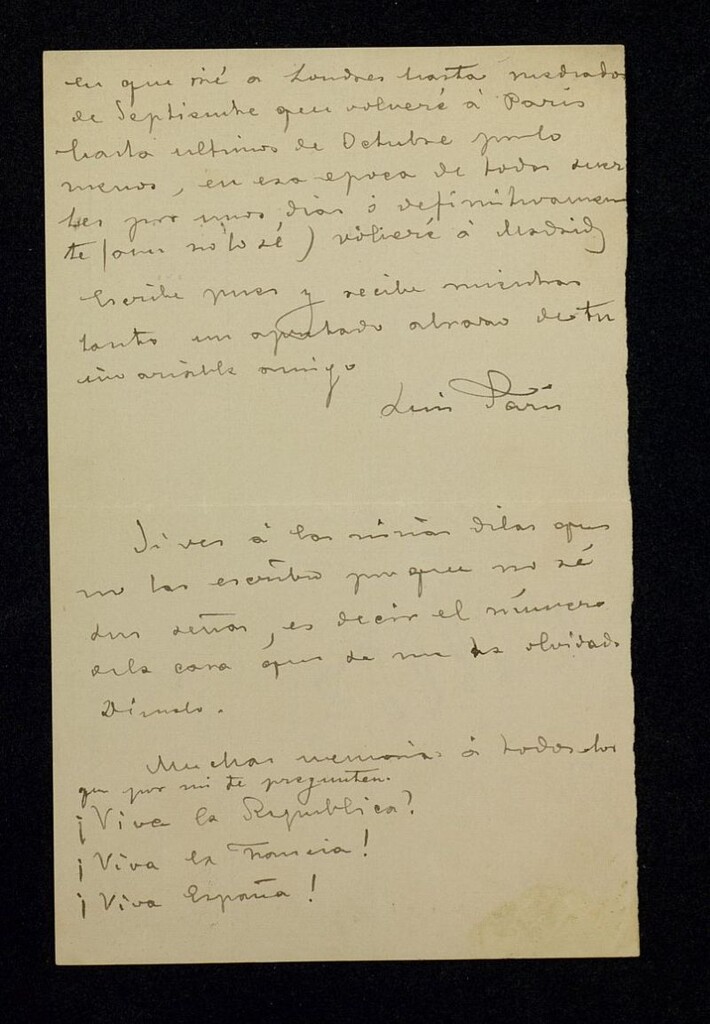 en que iré a Londres hasta mediados
de Septiembre que volveré á París
hasta ultimos de Octubre por lo
menos, en esa epoca de todas suer
tes por unos dias ó definitivamen
te (aun no lo sé) volveré á Madrid
Escribe pues y recibe mientras
tanto un apretado abrazo de tu
invariable amigo
Luis París
Si ves á las niñas dilas que
no las escribo porque no sé
sus señas, es decir el número
de la casa que se me ha olvidado
Dímelo.
Muchas memorias á todos los
que por mi te pregunten.
¡Viva la Republica?
¡Viva la Francia!
¡Viva España!